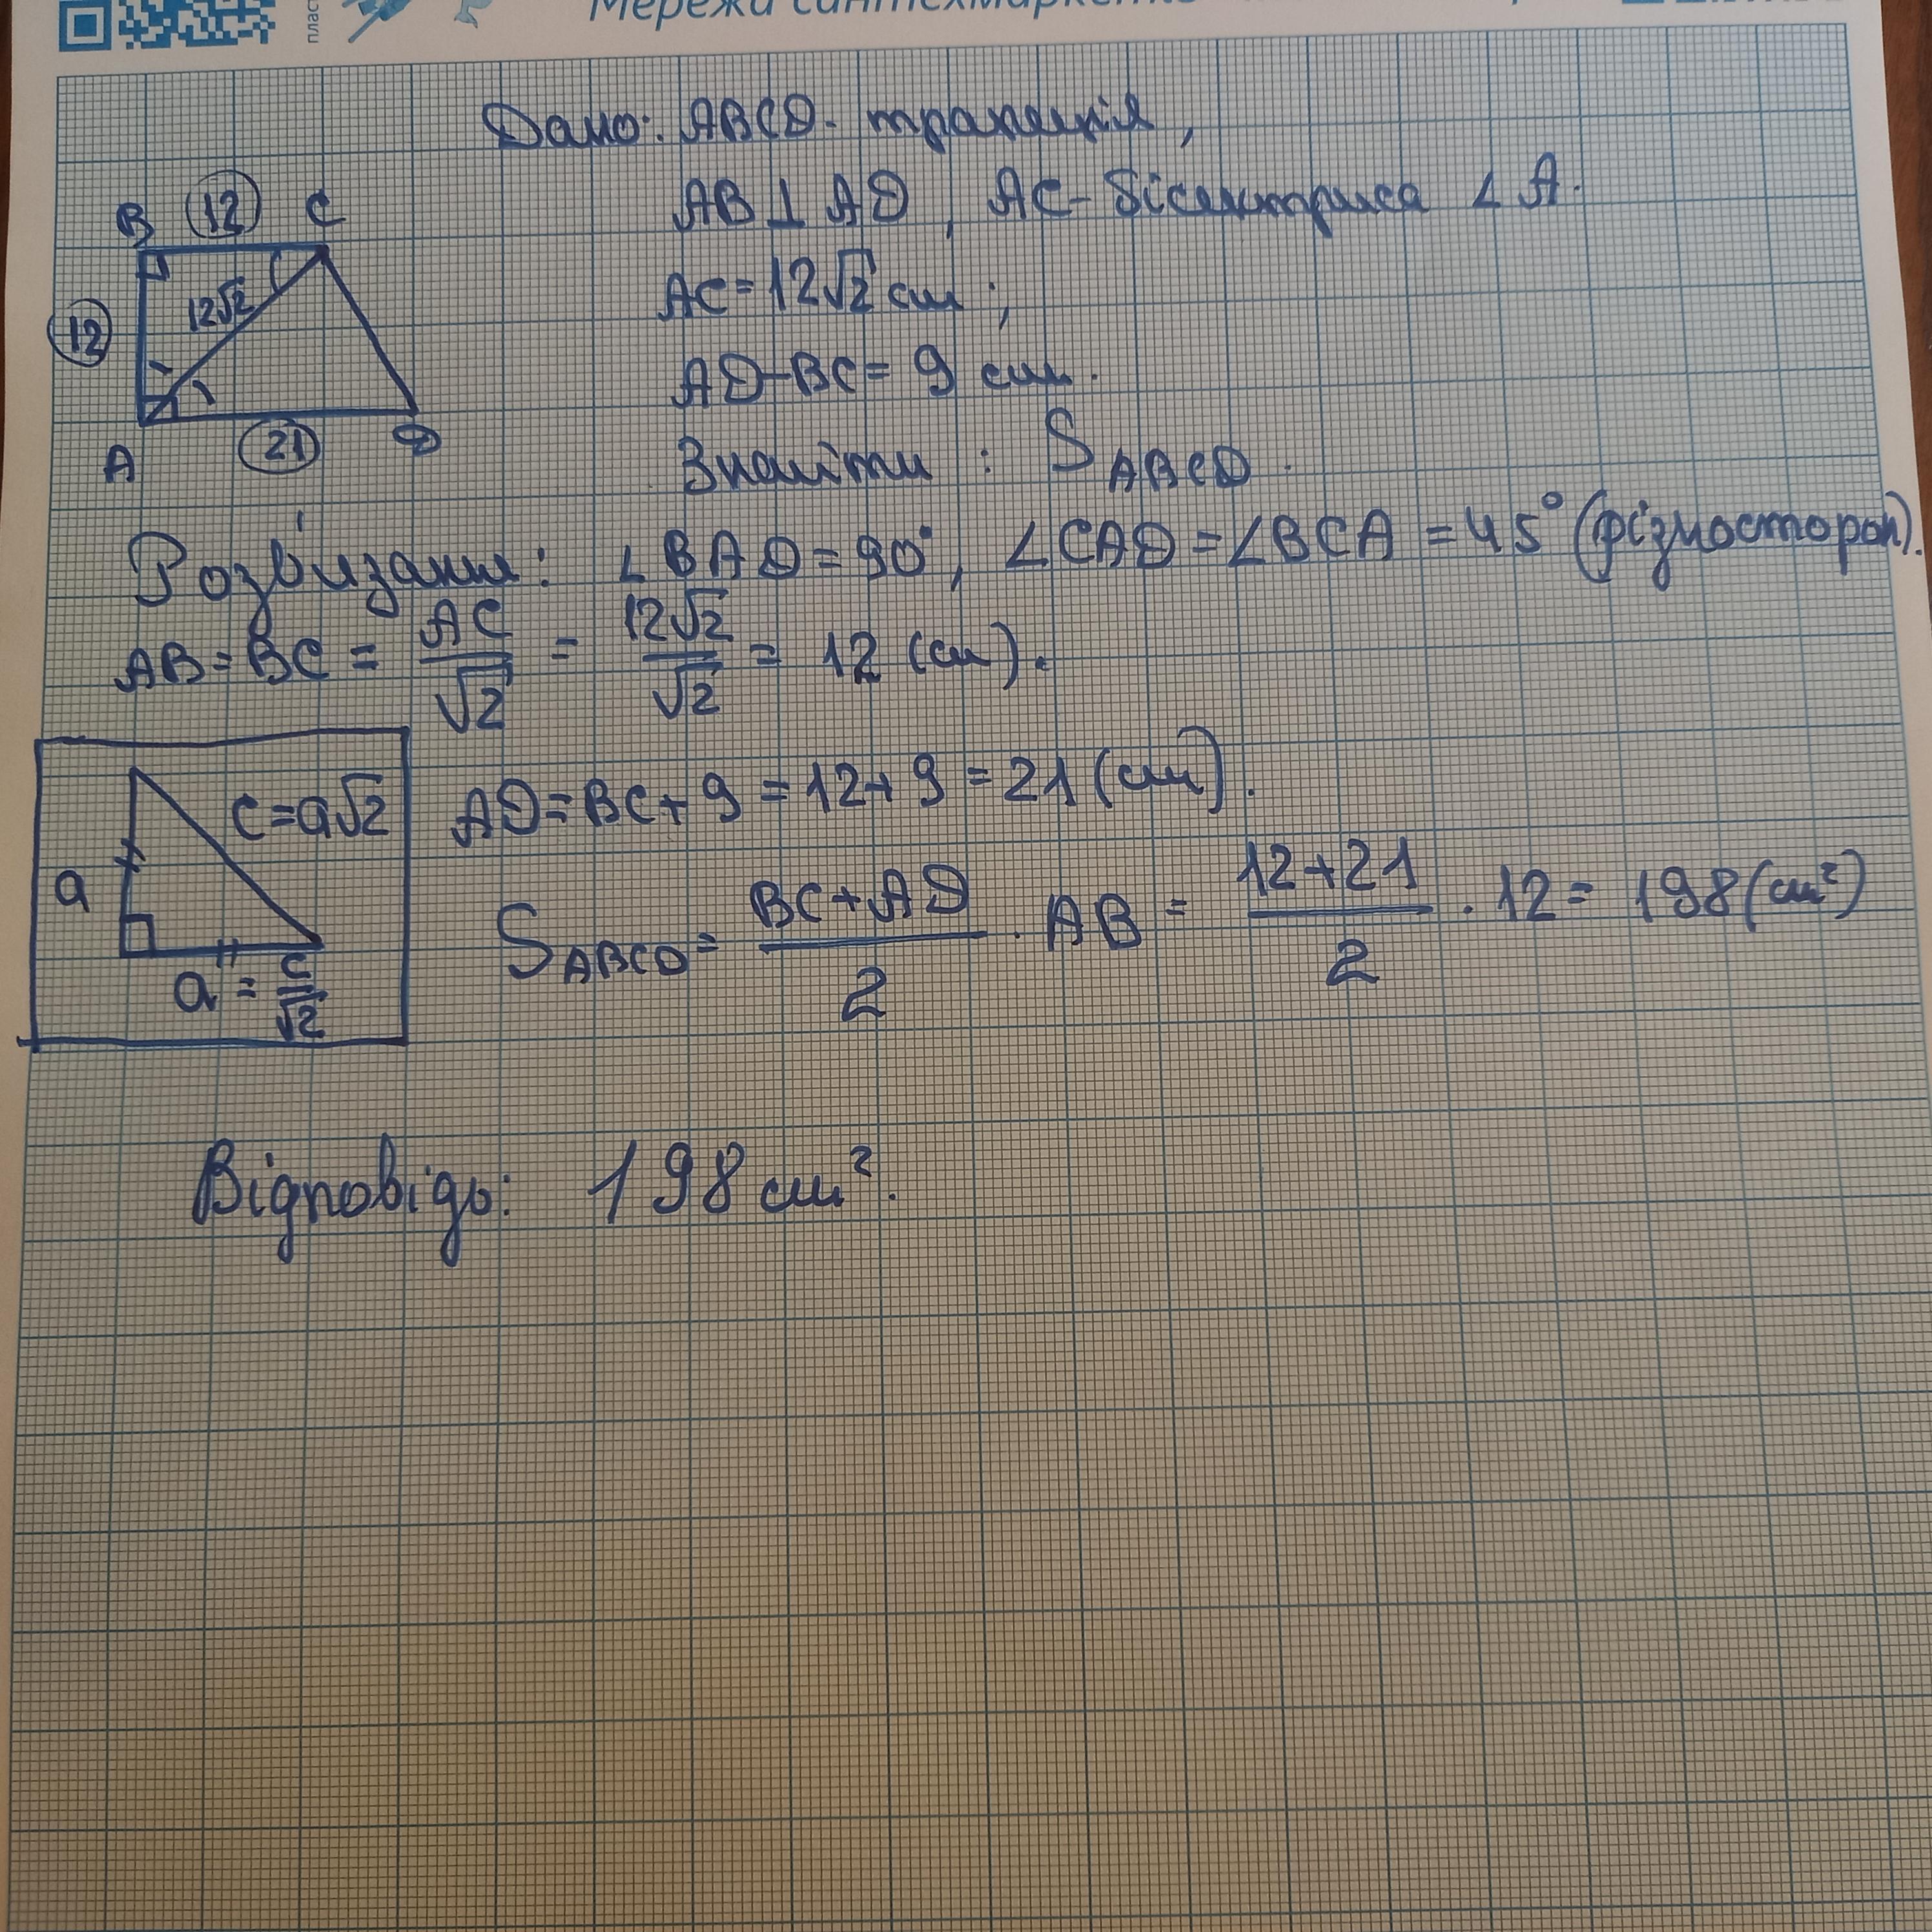 Дано: ABCD - трапеція,
AB ⊥ AD, AC - бісектриса ∠A.
AC = 12√2 см;
AD - BC = 9 см.
Знайти: S ABCD.
B 12 C
12√2
12
A 21 D
Розв'язання: ∠BAD = 90°, ∠CAD = ∠BCA = 45° (різносторон).
AB = BC = AC/√2 = 12√2/√2 = 12 (см).
c = a√2
a
a = c/√2
AD = BC + 9 = 12 + 9 = 21 (см).
S ABCD = (BC + AD)/2 · AB = (12 + 21)/2 · 12 = 198 (см²)
Відповідь: 198 см².